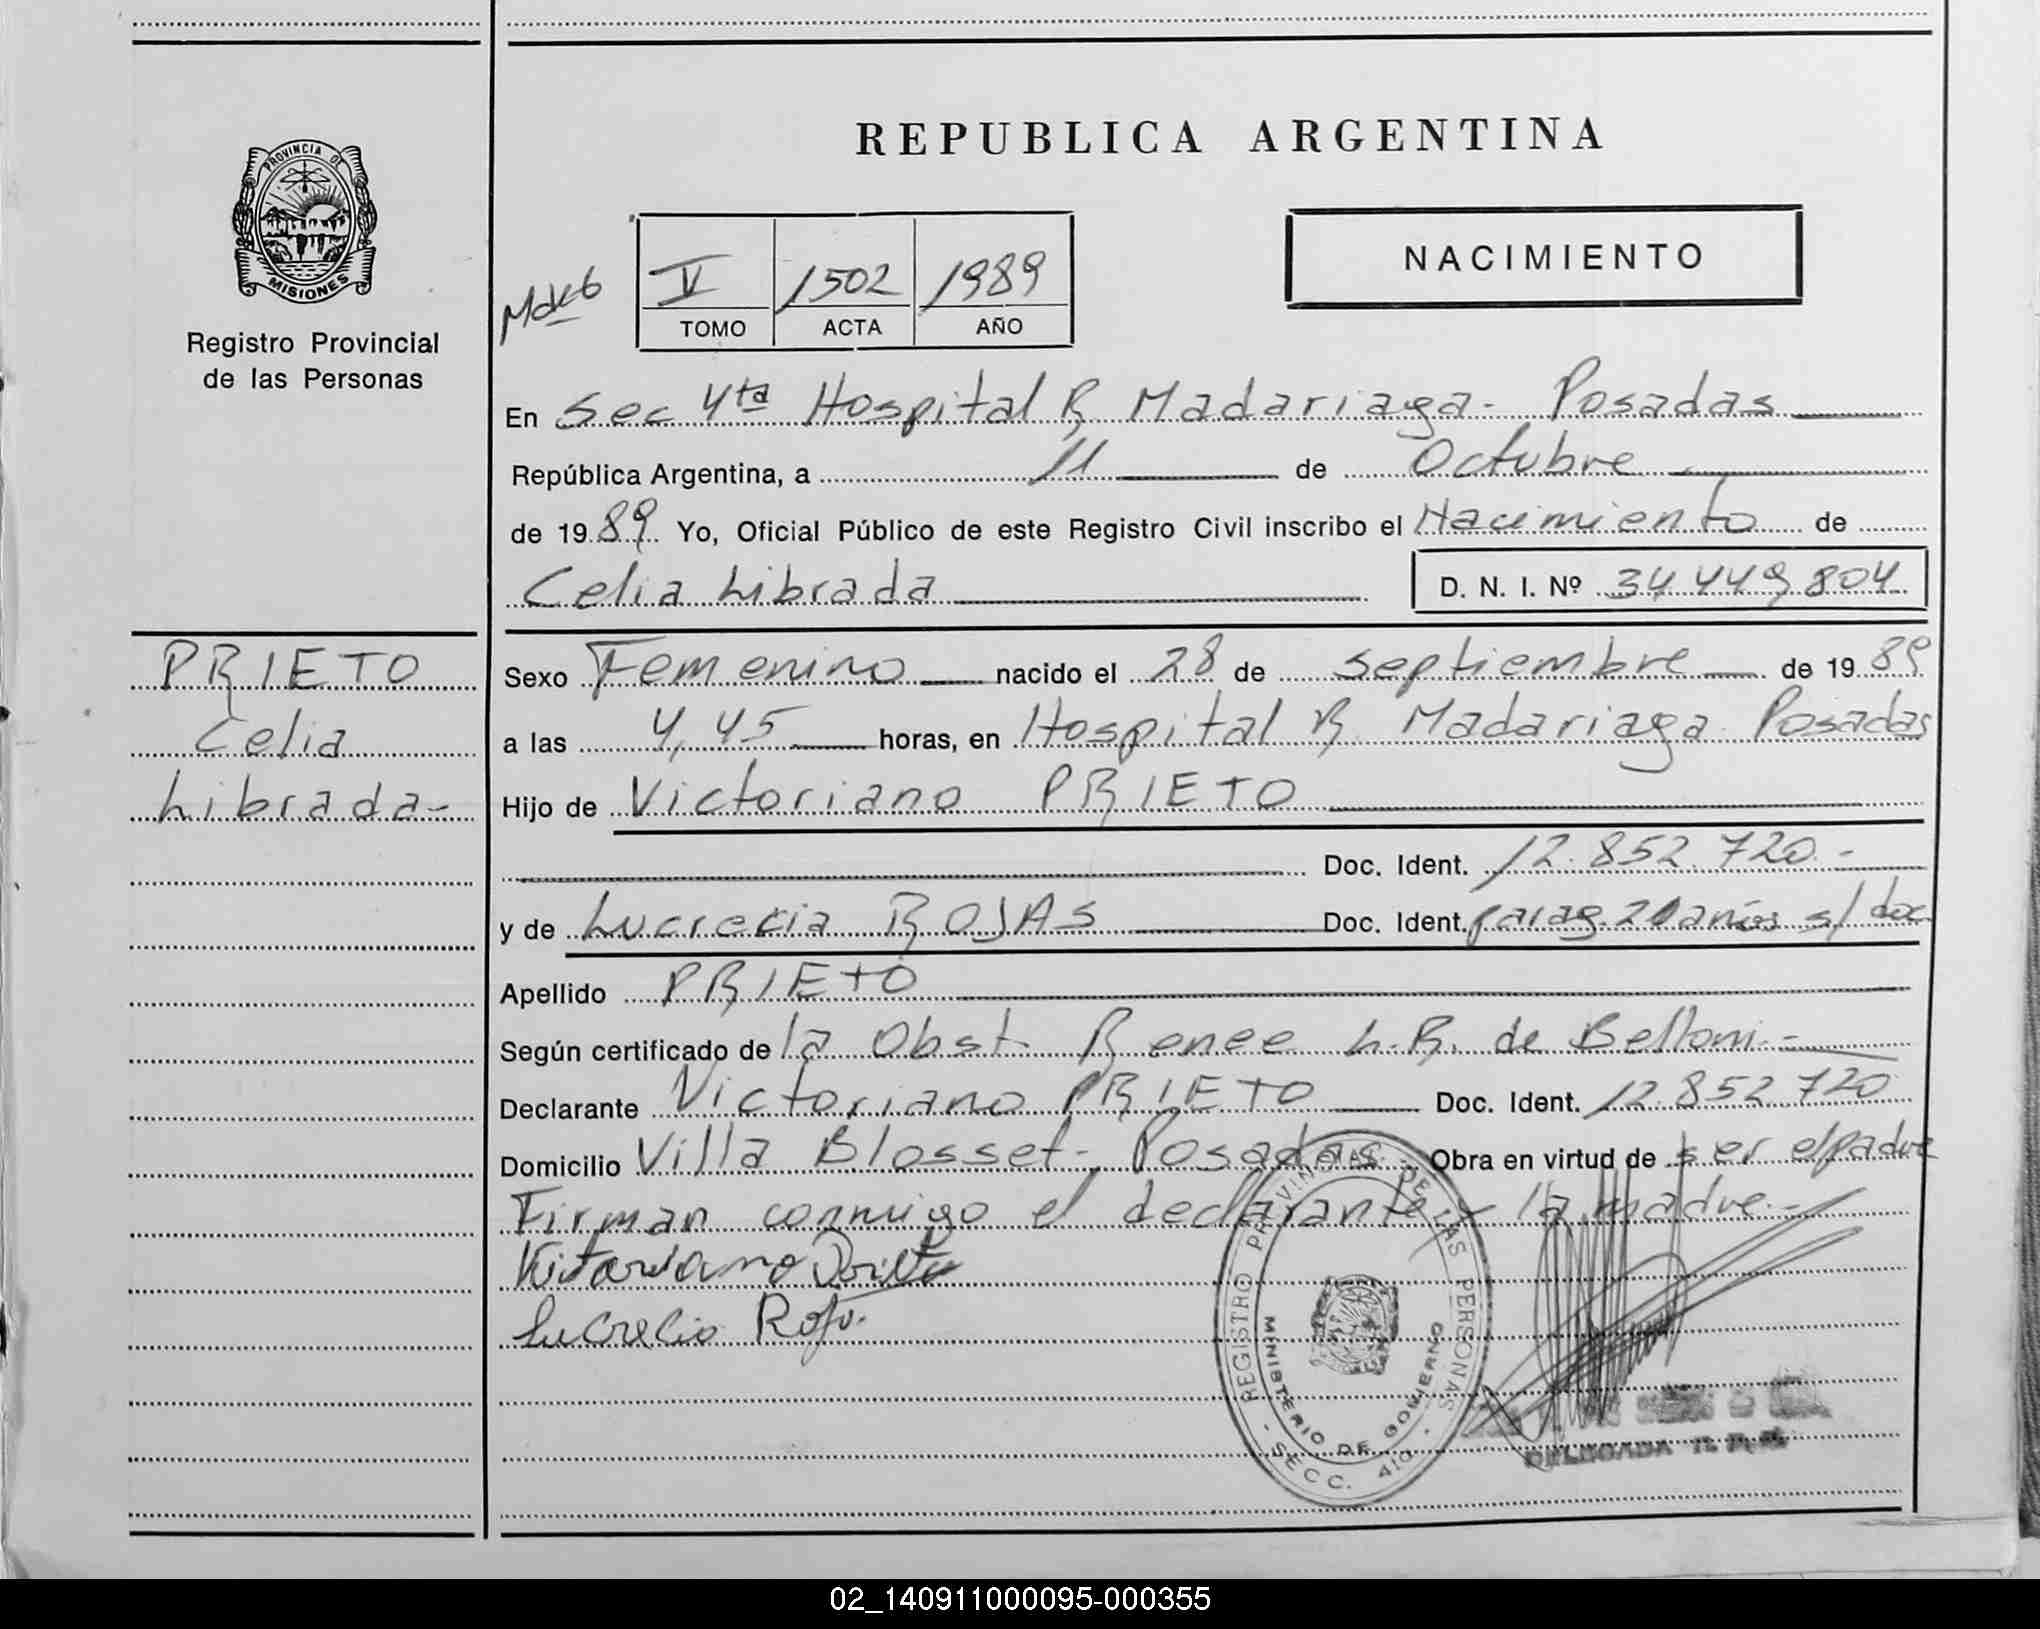 REPUBLICA ARGENTINA
PROVINCIA DE
MISIONES
Registro Provincial
de las Personas
NACIMIENTO
V 1502 1989
TOMO ACTA AÑO
En Sec 4ta Hospital R Madariaga - Posadas
República Argentina, a 11 de Octubre
de 1989 Yo, Oficial Público de este Registro Civil inscribo el Nacimiento de
Celia Librada D. N. I. Nº 34.449.804
PRIETO
Celia
Librada-
Sexo Femenino nacido el 28 de septiembre de 1989
a las 4,45 horas, en Hospital R Madariaga Posadas
Hijo de Victoriano PRIETO
Doc. Ident. 12.852.720.-
y de Lucrecia ROJAS Doc. Ident. parag. 21 años s/ doc
Apellido PRIETO
Según certificado de la Obst. Renee L.R. de Belloni.-
Declarante Victoriano PRIETO Doc. Ident. 12.852.720
Domicilio Villa Blosset-, Posadas Obra en virtud de ser el padre
Firman conmigo el declarante y la madre.-
Victoriano Prieto
Lucrecia Roja.
REGISTRO PROVINCIAL DE LAS PERSONAS
MINISTERIO DE GOBIERNO
- SECC. 4ta -
DELEGADA
02_140911000095-000355